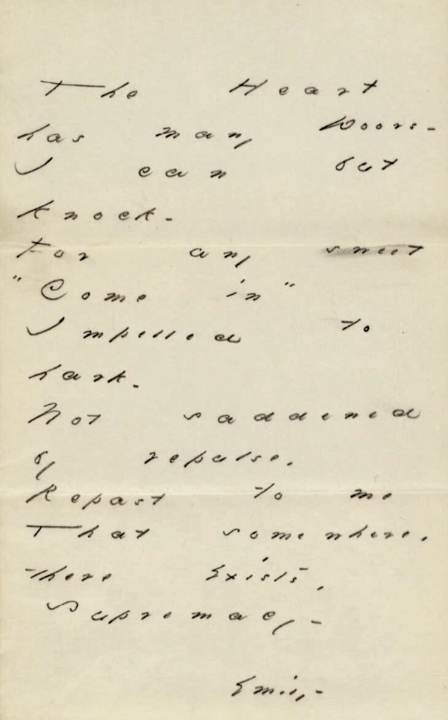 The Heart
has many Doors-
I can but
knock-
For any sweet
"Come in"
Impelled to
hark-
Not saddened
by repulse,
Repast to me
That somewhere,
there exists,
Supremacy-
Emily-